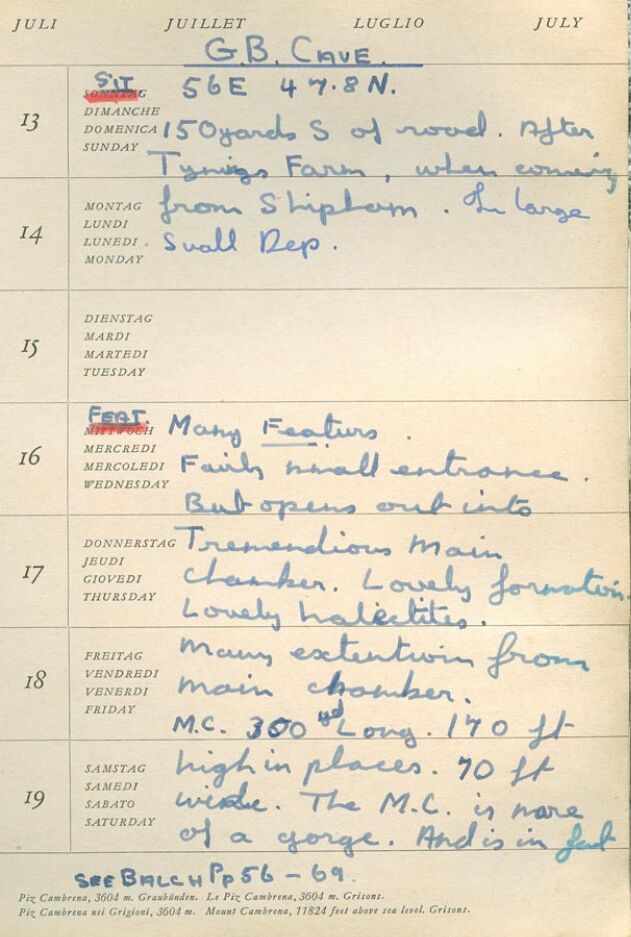 JULI JUILLET LUGLIO JULY
G.B. CAVE.
SIT 56E 47.8N.
SONNTAG
13 DIMANCHE
DOMENICA 150yards S of road. After
SUNDAY
Tynings Farm, when coming
MONTAG from Shipham. In large
LUNDI
14 LUNEDI Swall Dep.
MONDAY
DIENSTAG
MARDI
15 MARTEDI
TUESDAY
FEAT. Many Featurs.
MITTWOCH
16 MERCREDI
MERCOLEDI Fairly small entrance.
WEDNESDAY
But opens out into
DONNERSTAG Tremendious Main
JEUDI
17 GIOVEDI chamber. Lovely formation.
THURSDAY
Lovely halectites.
FREITAG Many extentwin from
VENDREDI
18 VENERDI main chamber.
FRIDAY
M.C. 300 yd Long. 170 ft
SAMSTAG high in places. 70 ft
SAMEDI
19 SABATO wide. The M.C. is more
SATURDAY
of a gorge. And is in fact
SEE BALCH Pp 56 - 69.
Piz Cambrena, 3604 m. Graubünden. Le Piz Cambrena, 3604 m. Grisons.
Piz Cambrena nei Grigioni, 3604 m. Mount Cambrena, 11824 feet above sea level. Grisons.